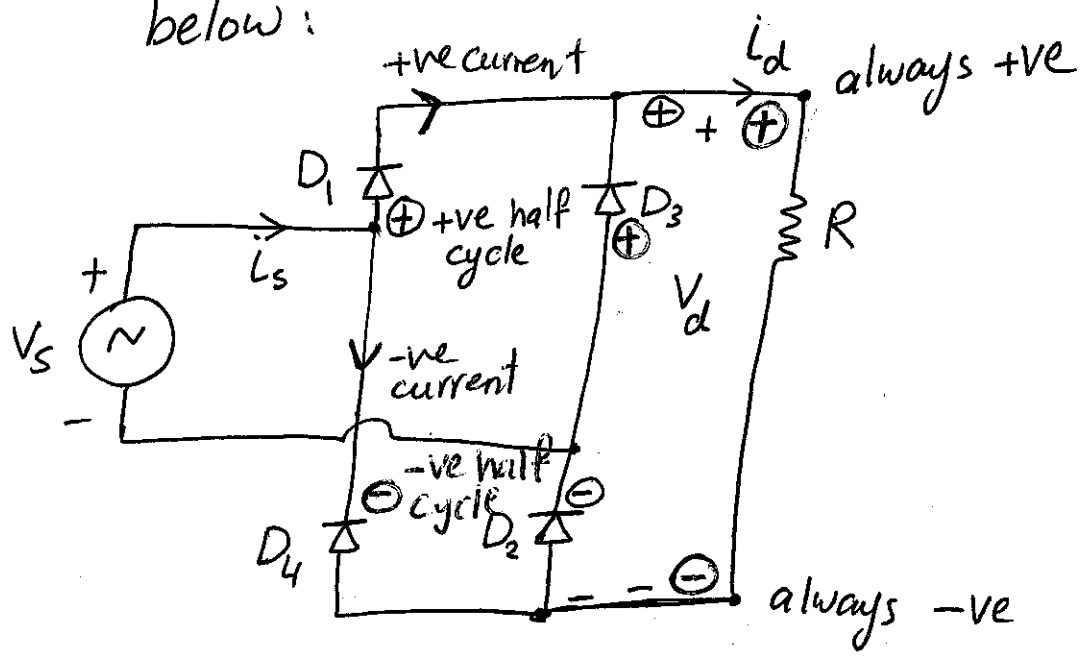 below :
+ve current
i_d
always +ve
⊕ + ⊕
D₁
⊕ +ve half
cycle
D₃
⊕
R
i_s
+
V_s
~
-
V_d
-ve
current
-ve half
cycle
⊖
⊖
D₄
D₂
- - ⊖
always -ve